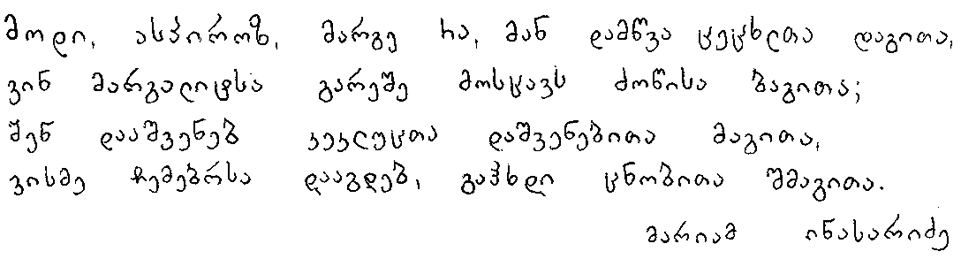 მოდი, ასპიროზ, მარგე რა, მან დამწვა ცეცხლთა დაგითა,
ვინ მარგალიტსა გარეშე მოსცავს ძოწისა ბაგითა;
შენ დააშვენებ კეკლუცთა დაშვენებითა მაგითა,
ვისმე ჩემებრსა დააგდებ, გაჰხდი ცნობითა შმაგითა.
მარიამ ინასარიძე